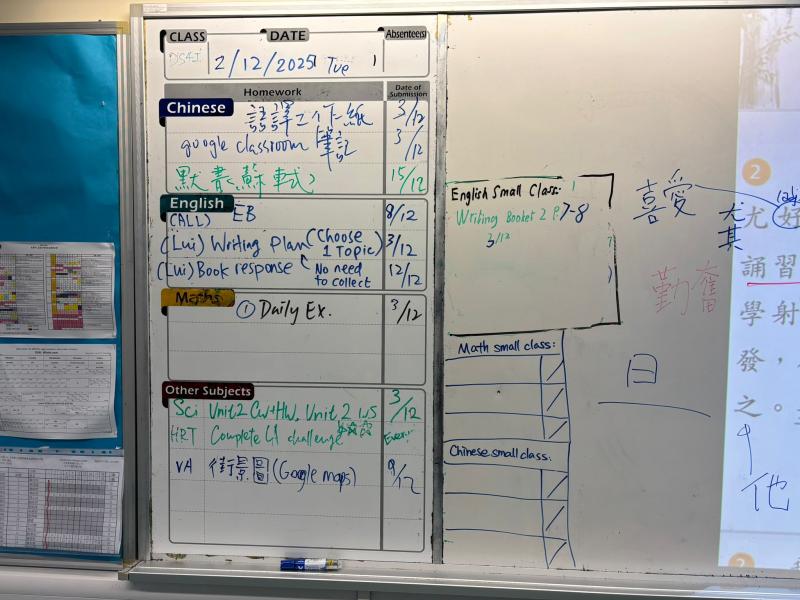 CLASS DATE Absentee(s)
2/12/2025 Tue 1
Homework Date of Submission
Chinese
語譯工作紙 3/12
google classroom 筆記 3/12
默書 蘇軾 15/12
English
(ALL) EB 8/12
(Lui) Writing Plan (Choose 1 Topic) 3/12
(Lui) Book response No need to collect 12/12
Maths
① Daily Ex. 3/12
Other Subjects
Sci Unit 2 CW+HW, Unit 2 WS 3/12
HRT Complete challenge
VA 街景圖 (Google maps) 9/12
English Small Class:
Writing Booklet 2 P.7-8
3/12
Math small class:
Chinese small class:
喜愛
尤其
勤奮
日
他
2
尤好
誦習
學射
發，
之。
2